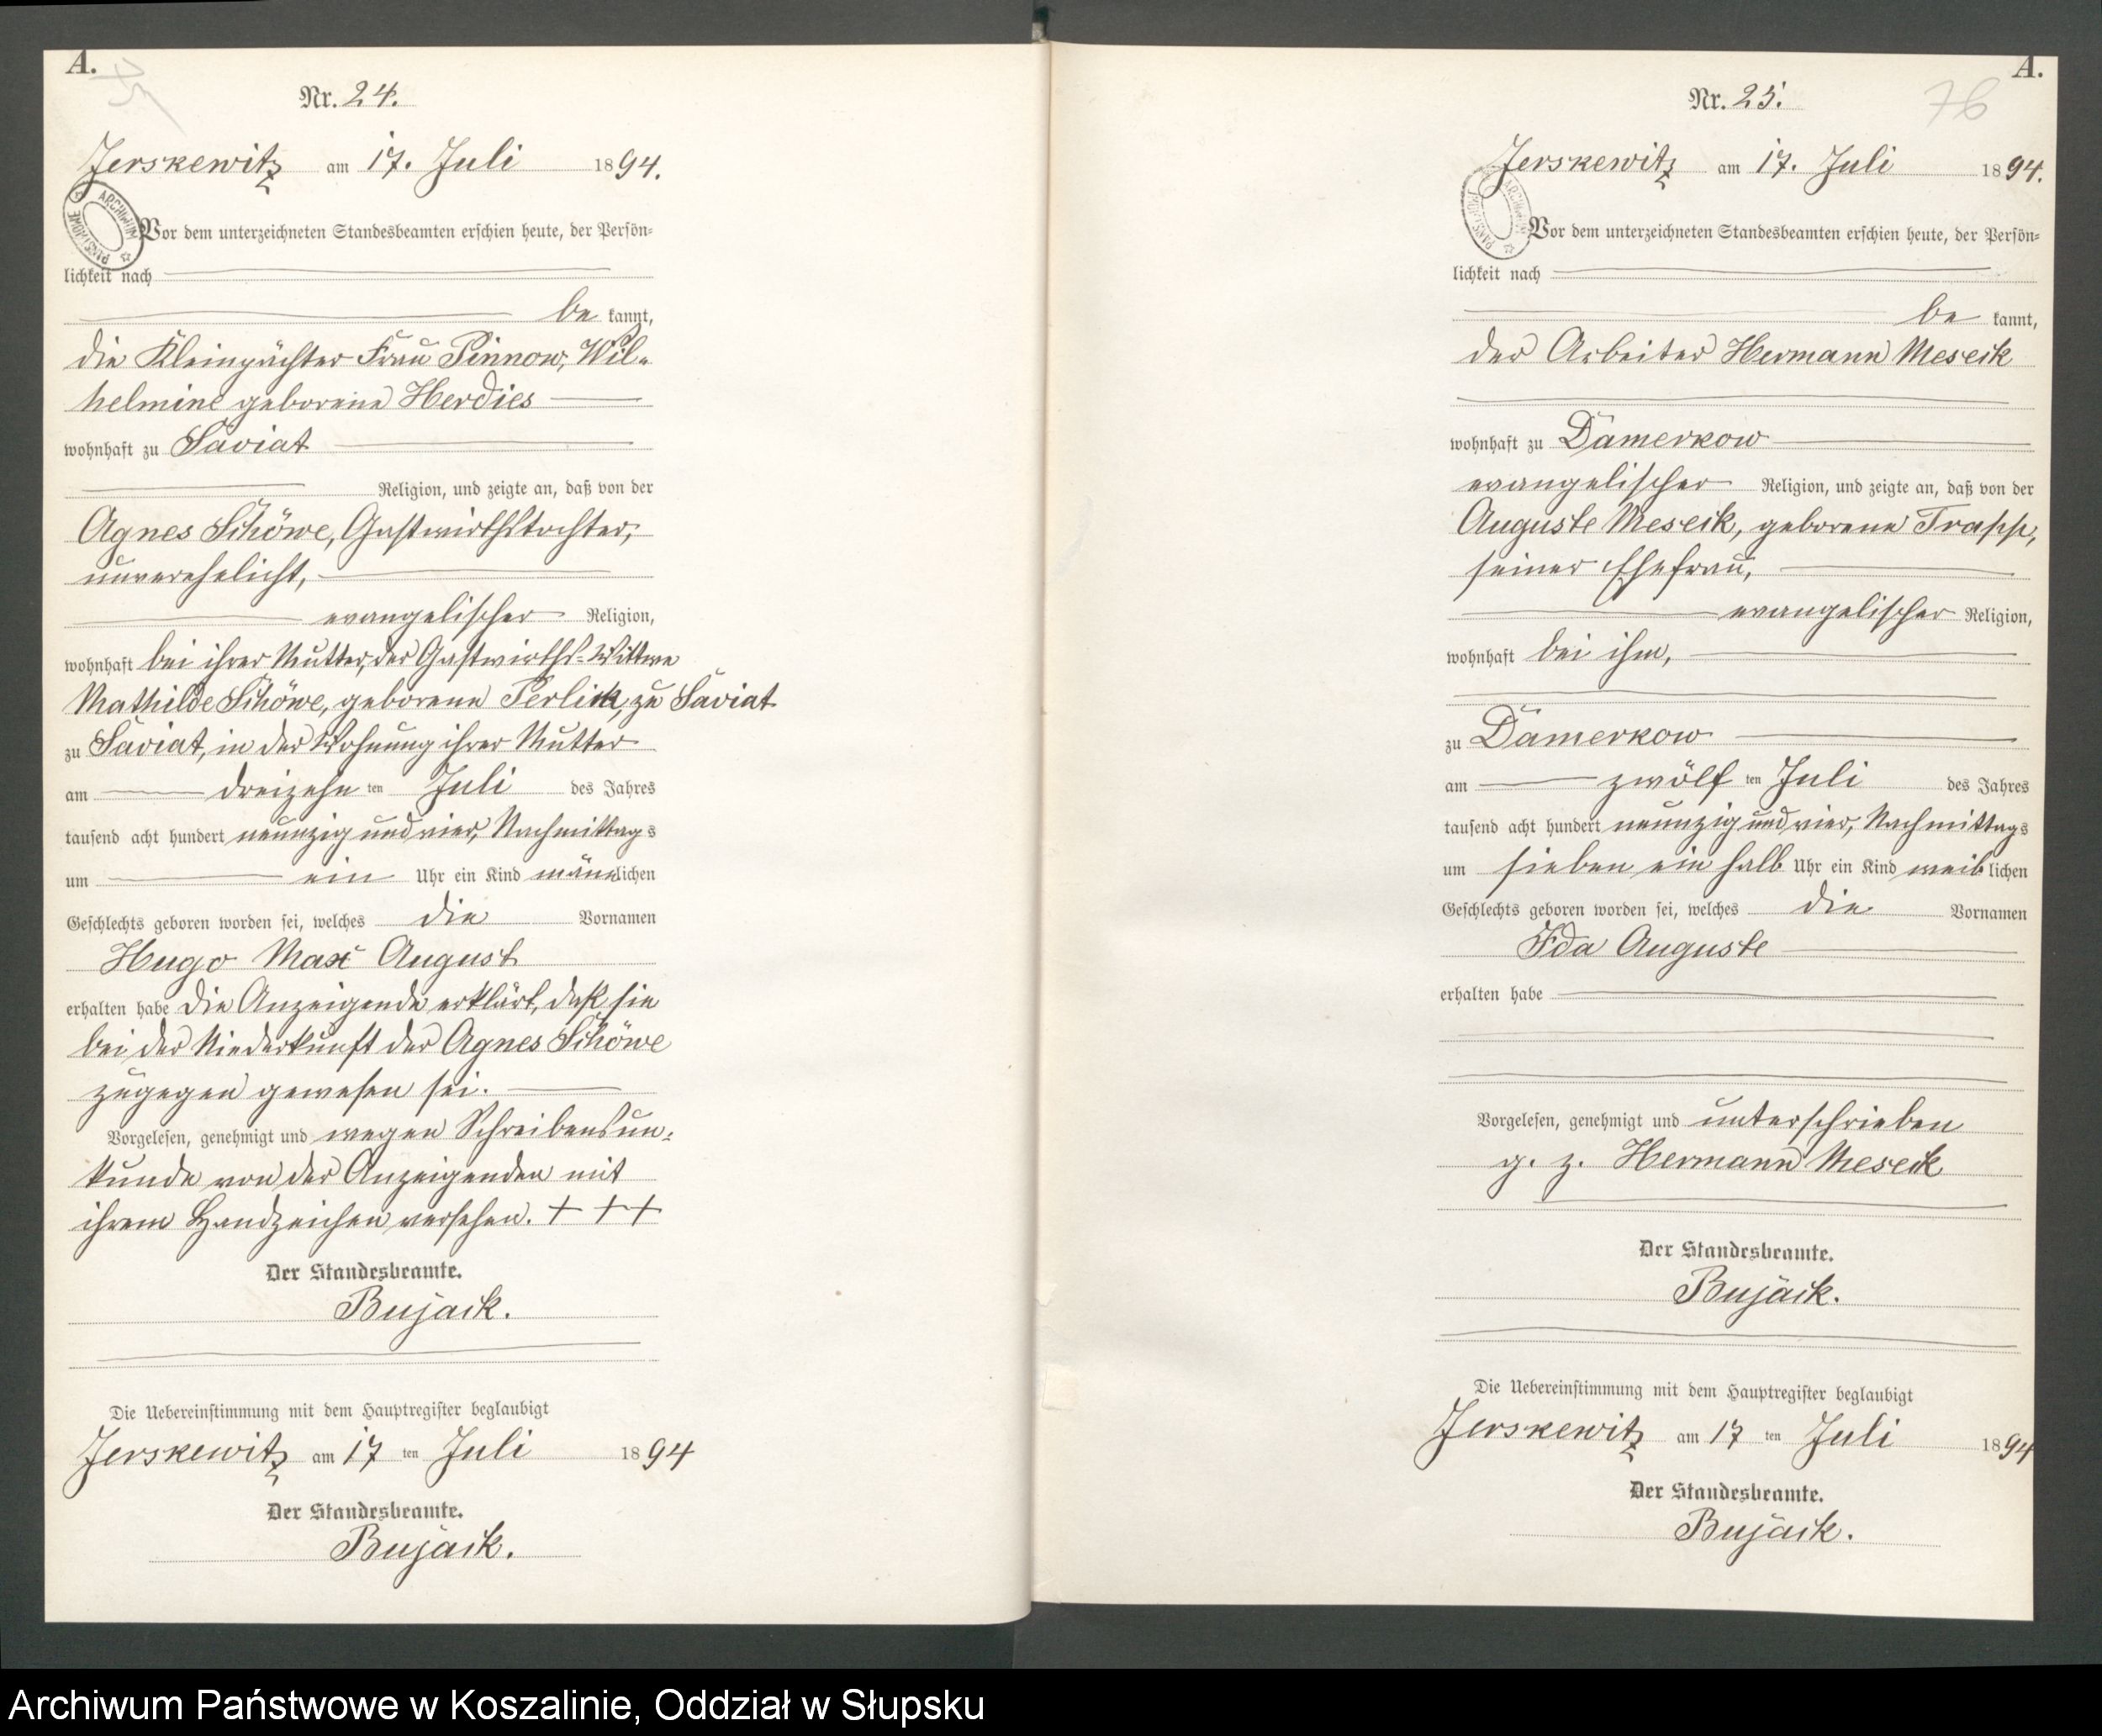 A.
75
Nr. 24.
Jerskewitz am 17. Juli 1894.
Vor dem unterzeichneten Standesbeamten erschien heute, der Persön-
lichkeit nach
be kannt,
die Kleinpächter Frau Pinnow, Wil-
helmine geborene Herdies
wohnhaft zu Saviat
Religion, und zeigte an, daß von der
Agnes Schöwe, Gastwirthstochter,
unverehelicht,
evangelischer Religion,
wohnhaft bei ihrer Mutter, der Gastwirths-Wittwe
Mathilde Schöwe, geborene Perlick, zu Saviat
zu Saviat, in der Wohnung ihrer Mutter
am dreizehn ten Juli des Jahres
tausend acht hundert neunzig und vier, Nachmittags
um ein Uhr ein Kind männlichen
Geschlechts geboren worden sei, welches die Vornamen
Hugo Max August
erhalten habe Die Anzeigende erklärt, daß sie
bei der Niederkunft der Agnes Schöwe
zugegen gewesen sei.
Vorgelesen, genehmigt und wegen Schreibensun-
kunde von der Anzeigenden mit
ihrem Handzeichen versehen. + + +
Der Standesbeamte.
Bujack.
Die Uebereinstimmung mit dem Hauptregister beglaubigt
Jerskewitz am 17 ten Juli 1894
Der Standesbeamte.
Bujack.
A.
76
Nr. 25.
Jerskewitz am 17. Juli 1894.
Vor dem unterzeichneten Standesbeamten erschien heute, der Persön-
lichkeit nach
be kannt,
der Arbeiter Hermann Meseck
wohnhaft zu Damerkow
evangelischer Religion, und zeigte an, daß von der
Auguste Meseck, geborene Trapp,
seiner Ehefrau,
evangelischer Religion,
wohnhaft bei ihm,
zu Damerkow
am zwölf ten Juli des Jahres
tausend acht hundert neunzig und vier, Nachmittags
um sieben ein halb Uhr ein Kind weiblichen
Geschlechts geboren worden sei, welches die Vornamen
Ida Auguste
erhalten habe
Vorgelesen, genehmigt und unterschrieben
g. z. Hermann Meseck
Der Standesbeamte.
Bujack.
Die Uebereinstimmung mit dem Hauptregister beglaubigt
Jerskewitz am 17 ten Juli 1894
Der Standesbeamte.
Bujack.
Archiwum Państwowe w Koszalinie, Oddział w Słupsku